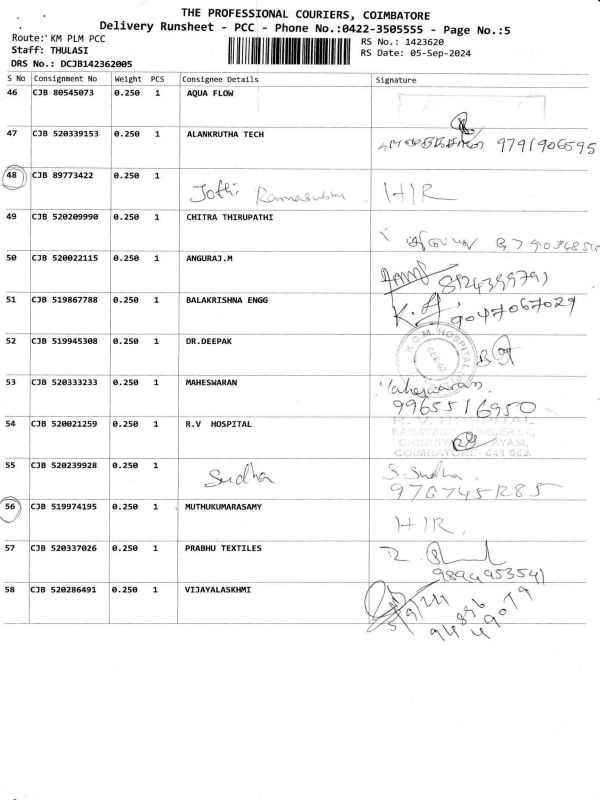 THE PROFESSIONAL COURIERS, COIMBATORE
Delivery Runsheet - PCC - Phone No.:0422-3505555 - Page No.:5
Route: KM PLM PCC
RS No.: 1423620
Staff: THULASI
RS Date: 05-Sep-2024
DRS No.: DCJB142362005
S No Consignment No Weight PCS Consignee Details Signature
46 CJB 80545073 0.250 1 AQUA FLOW
47 CJB 520339153 0.250 1 ALANKRUTHA TECH 9791906595
48 CJB 89773422 0.250 1 Jothi H/R
49 CJB 520209990 0.250 1 CHITRA THIRUPATHI
50 CJB 520022115 0.250 1 ANGURAJ.M
51 CJB 519867788 0.250 1 BALAKRISHNA ENGG 9047067029
52 CJB 519945308 0.250 1 DR.DEEPAK K.G.M. HOSPITAL
53 CJB 520333233 0.250 1 MAHESWARAN Maheswaran
9965516950
54 CJB 520021259 0.250 1 R.V HOSPITAL R. V. HOSPITAL
COIMBATORE- 641 062
55 CJB 520239928 0.250 1 Sudha S. Sudha
56 CJB 519974195 0.250 1 MUTHUKUMARASAMY H/R
57 CJB 520337026 0.250 1 PRABHU TEXTILES
9894953541
58 CJB 520286491 0.250 1 VIJAYALASKHMI
5/9/24